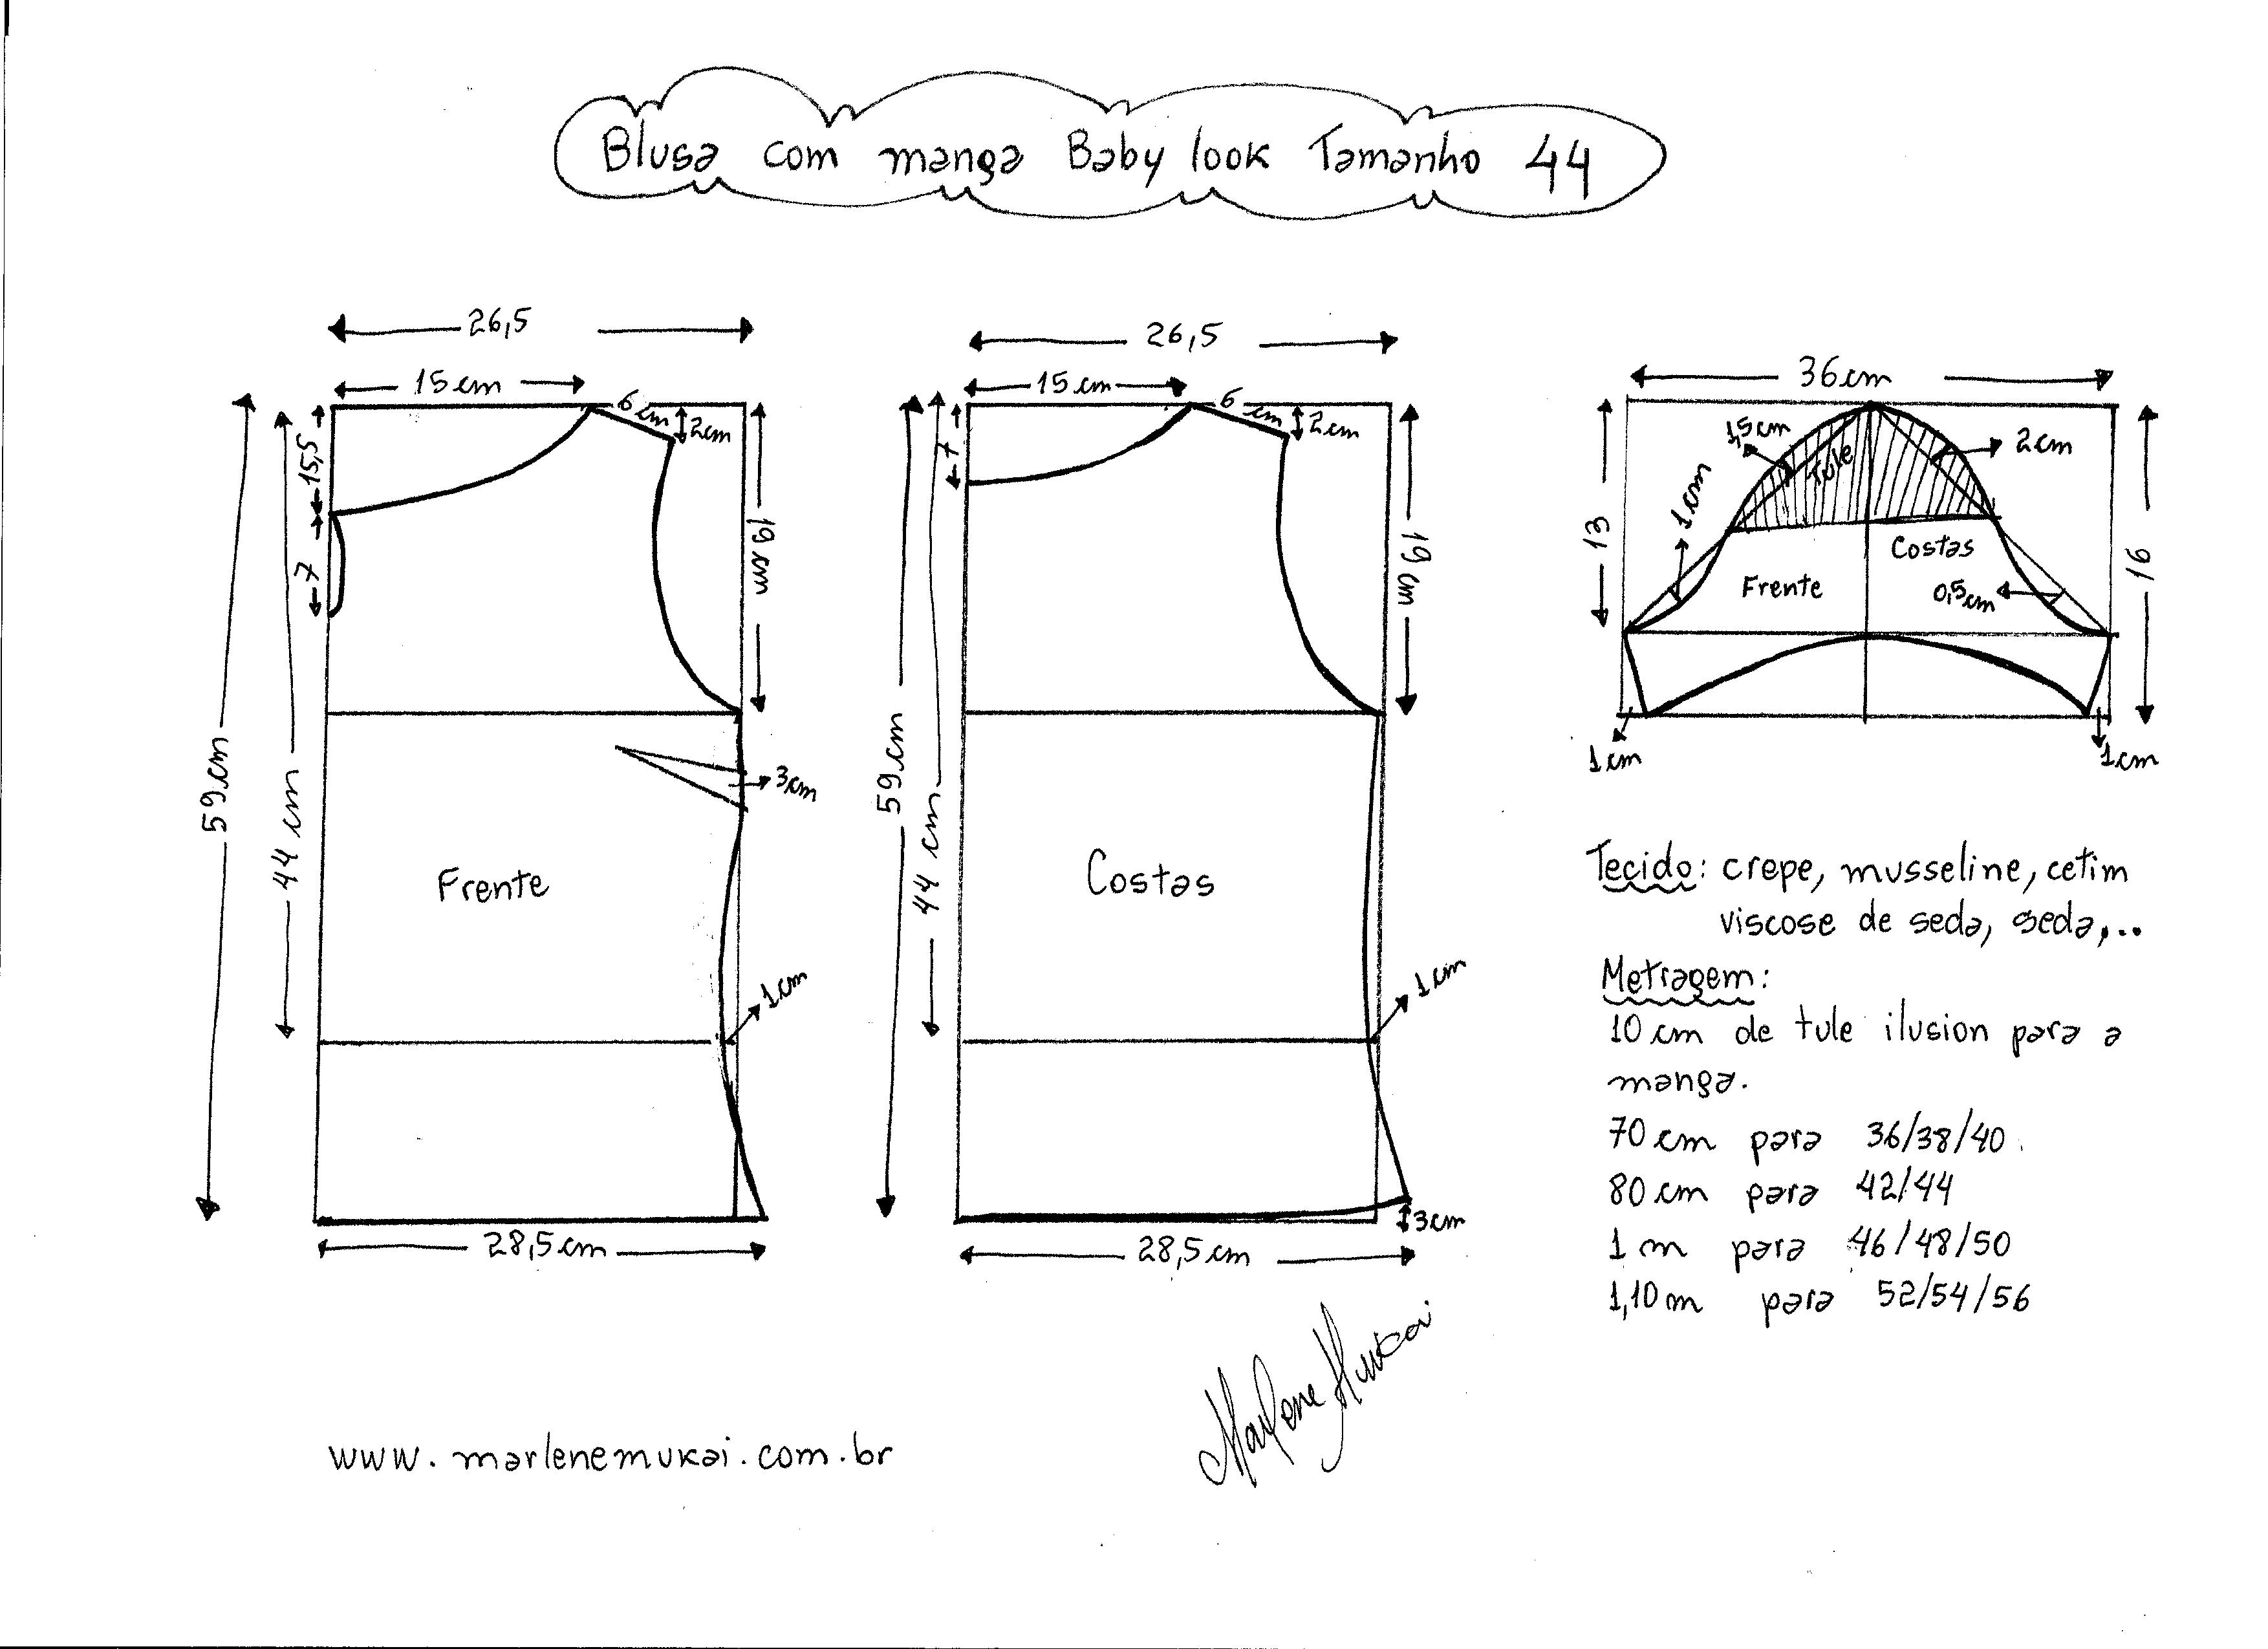 Blusa com manga Baby look Tamanho 44
26,5
15 cm
6 cm
2cm
15,5
7
19 cm
59 cm
44 cm
3cm
Frente
1cm
28,5cm
26,5
15 cm
6 cm
2cm
7
19 cm
59 cm
44 cm
Costas
1cm
3cm
28,5cm
36cm
1,5cm
Tule
2cm
1cm
13
Costas
Frente
0,5cm
16
1cm
1cm
Tecido: crepe, musseline, cetim
viscose de seda, seda,...
Metragem:
10 cm de tule ilusion para a
manga.
70 cm para 36/38/40
80 cm para 42/44
1 m para 46/48/50
1,10m para 52/54/56
Marlene Mukai
www.marlenemukai.com.br